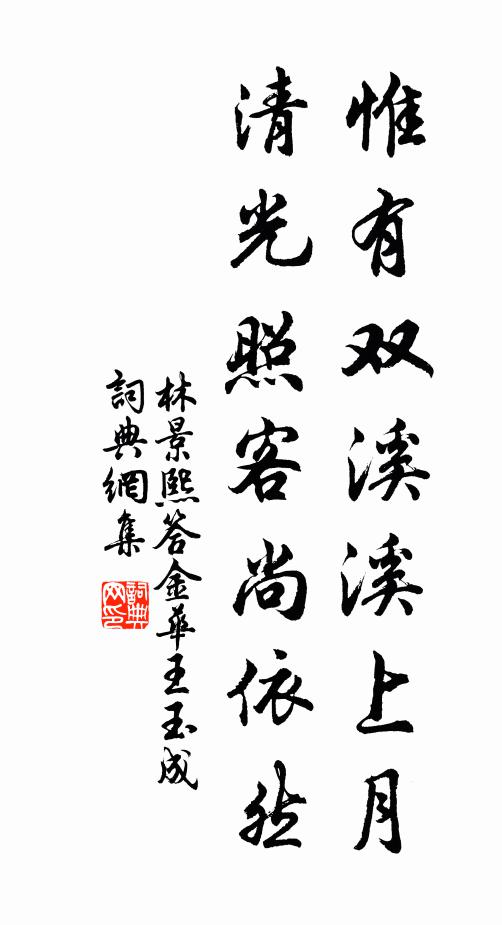 惟有双溪溪上月
清光照客尚依然
林景熙答金華王玉成
詞典網集
詞典网印